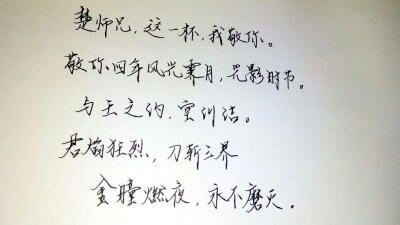 楚师兄,这一杯,我敬你。
敬你四年风光霁月,光影时节。
与王之约,
君焰狂烈,刀斩三界
金瞳燃夜,永不磨灭.